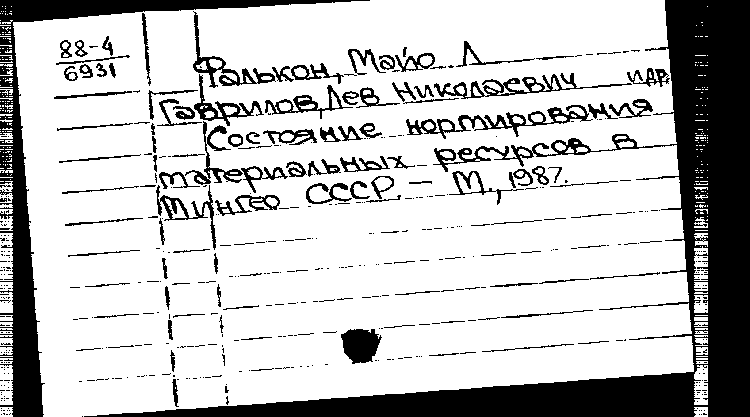 88-4
6931
Фалькон, Майо Л
Гаврилов, Лев Николаевич и др.
Состояние нормирования
материальных ресурсов в
Мингео СССР. – М., 1987.